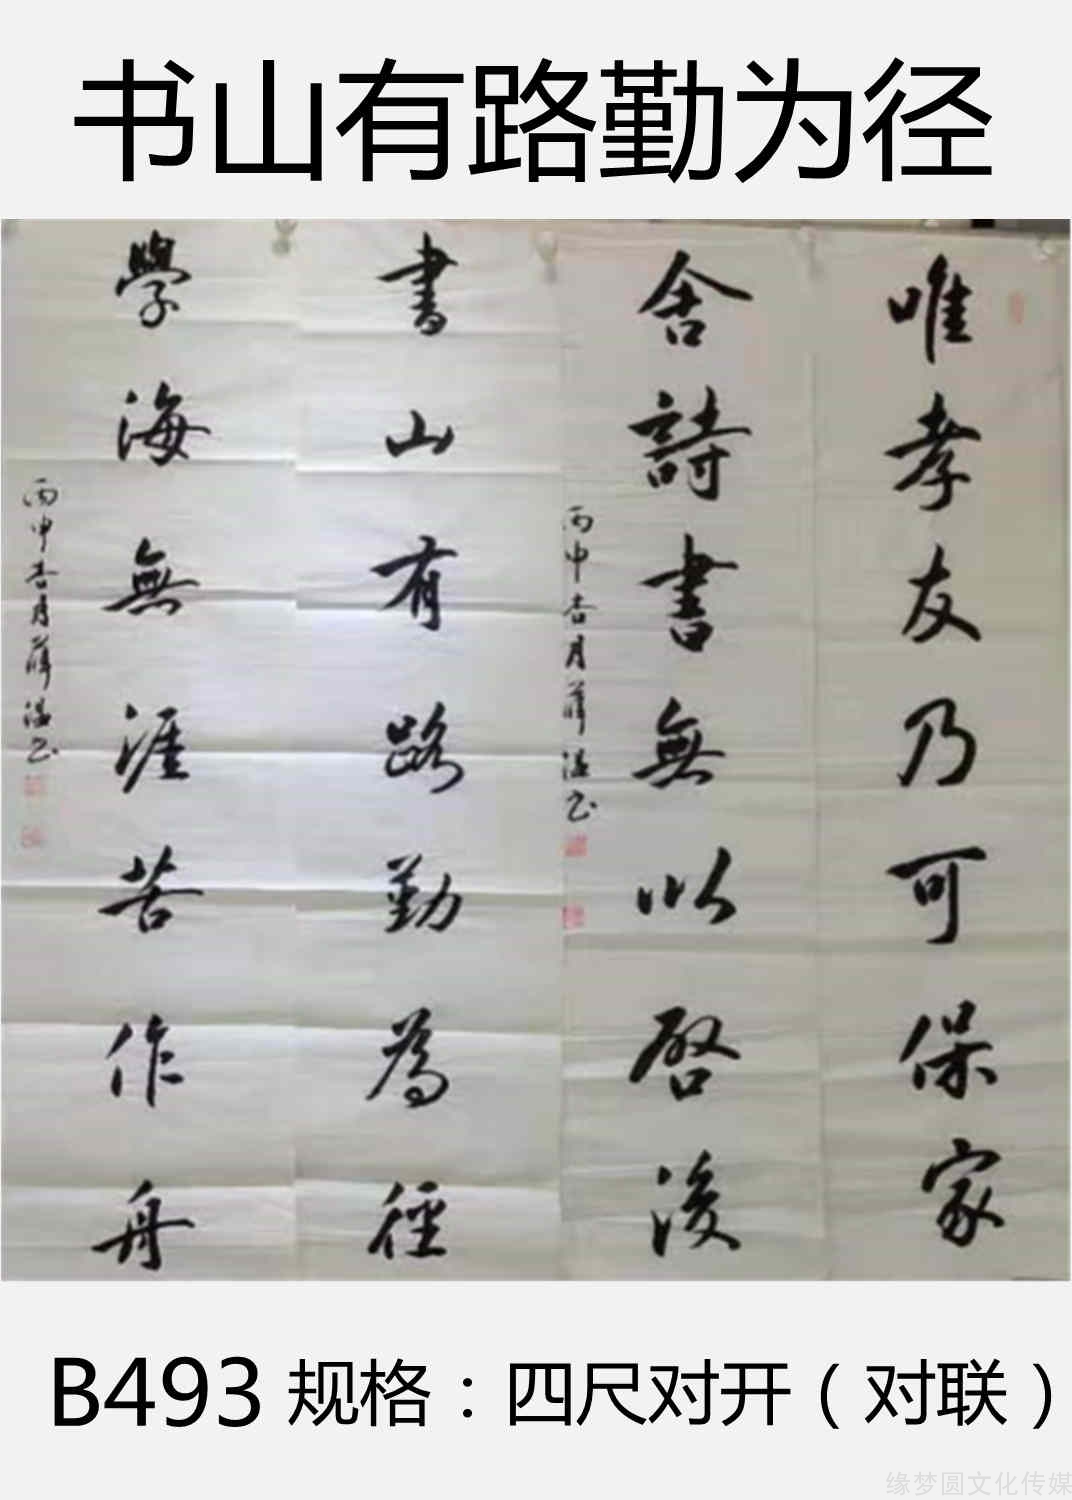 书山有路勤为径
唯孝友乃可保家
舍詩書無以啓後
丙申杏月薛溫书
書山有路勤為徑
學海無涯苦作舟
丙申杏月薛溫书
B493 规格：四尺对开（对联）
缘梦圆文化传媒